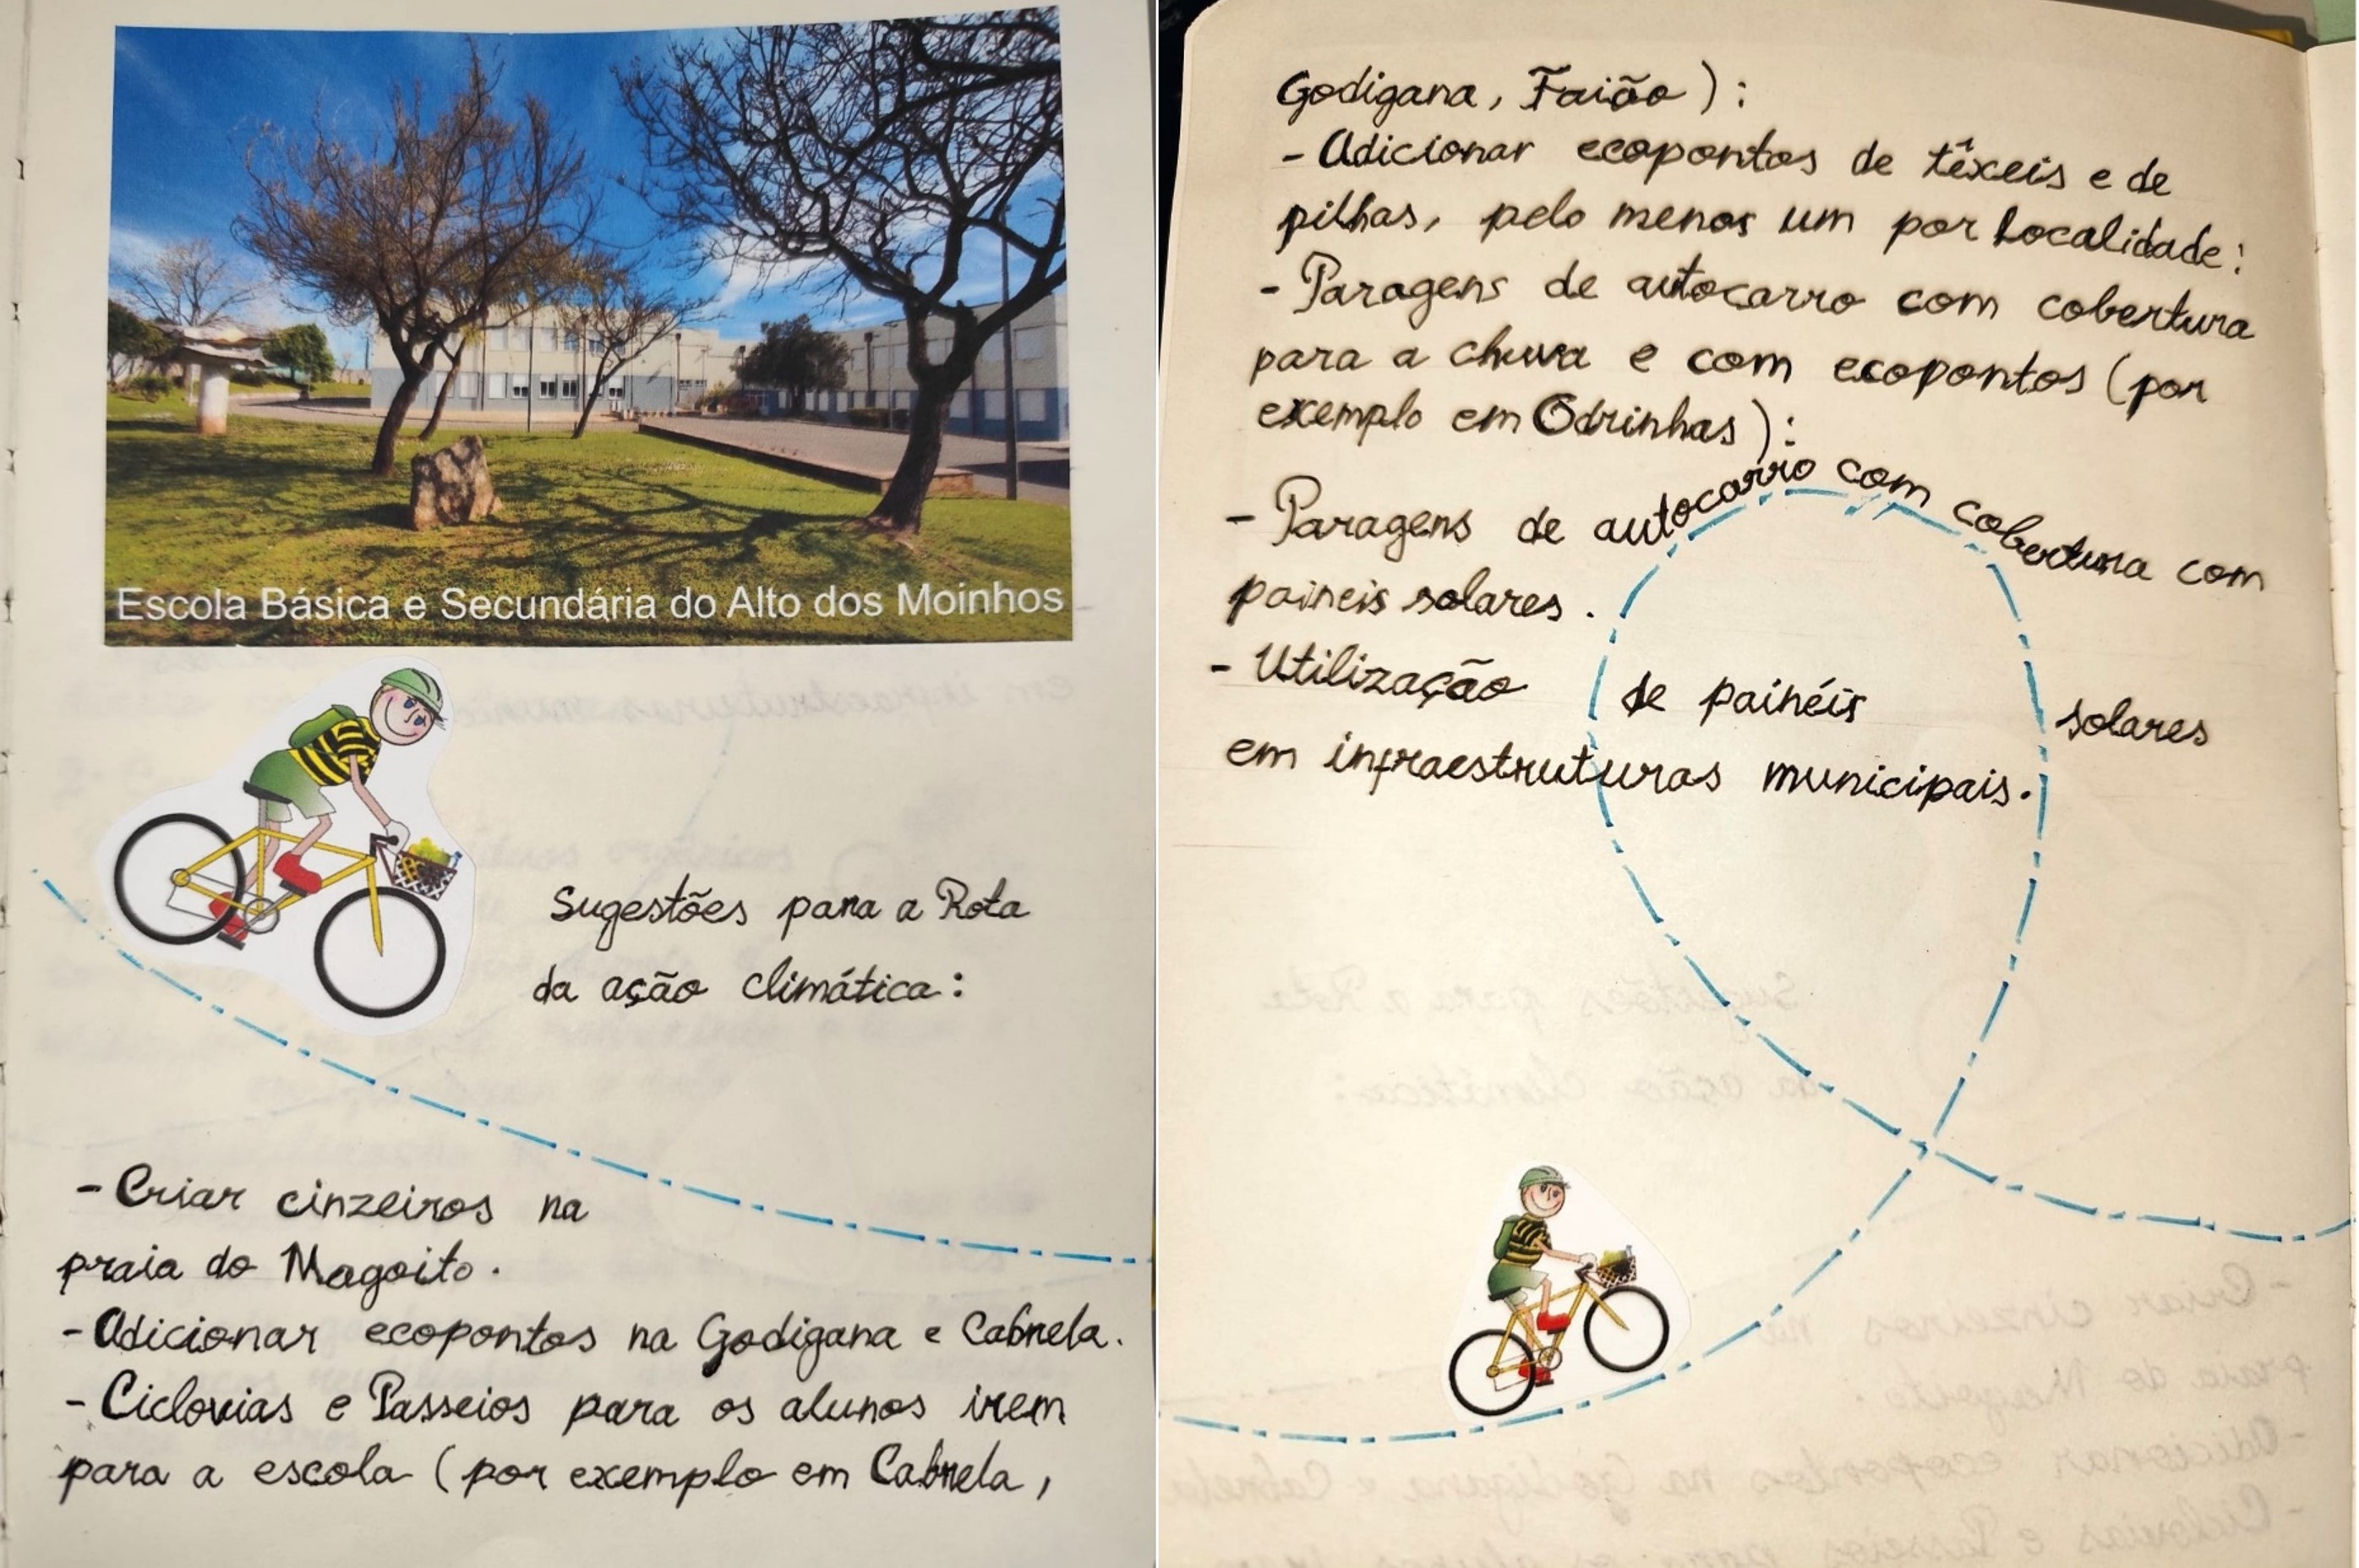 Escola Básica e Secundária do Alto dos Moinhos
Sugestões para a Rota
da ação climática:
- Criar cinzeiros na
praia do Magoito.
- Adicionar ecopontos na Godigana e Cabrela.
- Ciclovias e Passeios para os alunos irem
para a escola (por exemplo em Cabrela,
Godigana, Faião):
- Adicionar ecopontos de têxeis e de
pilhas, pelo menos um por localidade;
- Paragens de autocarro com cobertura
para a chuva e com ecopontos (por
exemplo em Odrinhas);
- Paragens de autocarro com cobertura com
paineis solares.
- Utilização de painéis solares
em infraestruturas municipais.